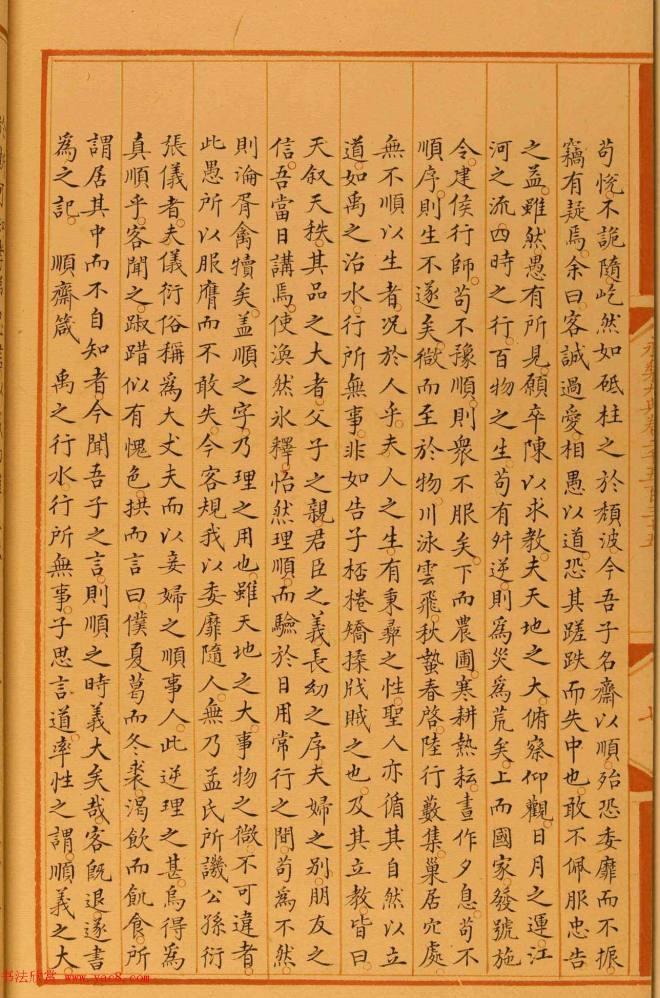 苟悅不詭隨屹然如砥柱之於頹波今吾子名齋以順殆恐委靡而不振
竊有疑焉余曰客誠過愛相愚以道恐其蹉跌而失中也敢不佩服忠告
之益雖然愚有所見願卒陳以求教夫天地之大俯察仰觀日月之運江
河之流四時之行百物之生苟有舛逆則為災為荒矣上而國家發號施
令建侯行師苟不豫順則衆不服矣下而農圃寒耕熱耘晝作夕息苟不
順序則生不遂矣微而至於物川泳雲飛秋蟄春啓陸行藪集巢居穴處
無不順以生者況於人乎夫人之生有秉彞之性聖人亦循其自然以立
道如禹之治水行所無事非如告子桮棬矯揉戕賊之也及其立教皆曰
天叙天秩其品之大者父子之親君臣之義長幼之序夫婦之別朋友之
信吾當日講焉使渙然氷釋怡然理順而驗於日用常行之間苟為不然
則淪胥禽犢矣蓋順之字乃理之用也雖天地之大事物之微不可違者
此愚所以服膺而不敢失今客規我以委靡隨人無乃孟氏所譏公孫衍
張儀者夫儀衍俗稱為大丈夫而以妾婦之順事人此逆理之甚烏得為
真順乎客聞之踧踖似有愧色拱而言曰僕夏葛而冬裘渴飲而飢食所
謂居其中而不自知者今聞吾子之言則順之時義大矣哉客既退遂書
為之記 順齋箴 禹之行水行所無事子思言道率性之謂順義之大
永樂大典卷二千五百三十五
七
书法欣赏 www.yac8.com